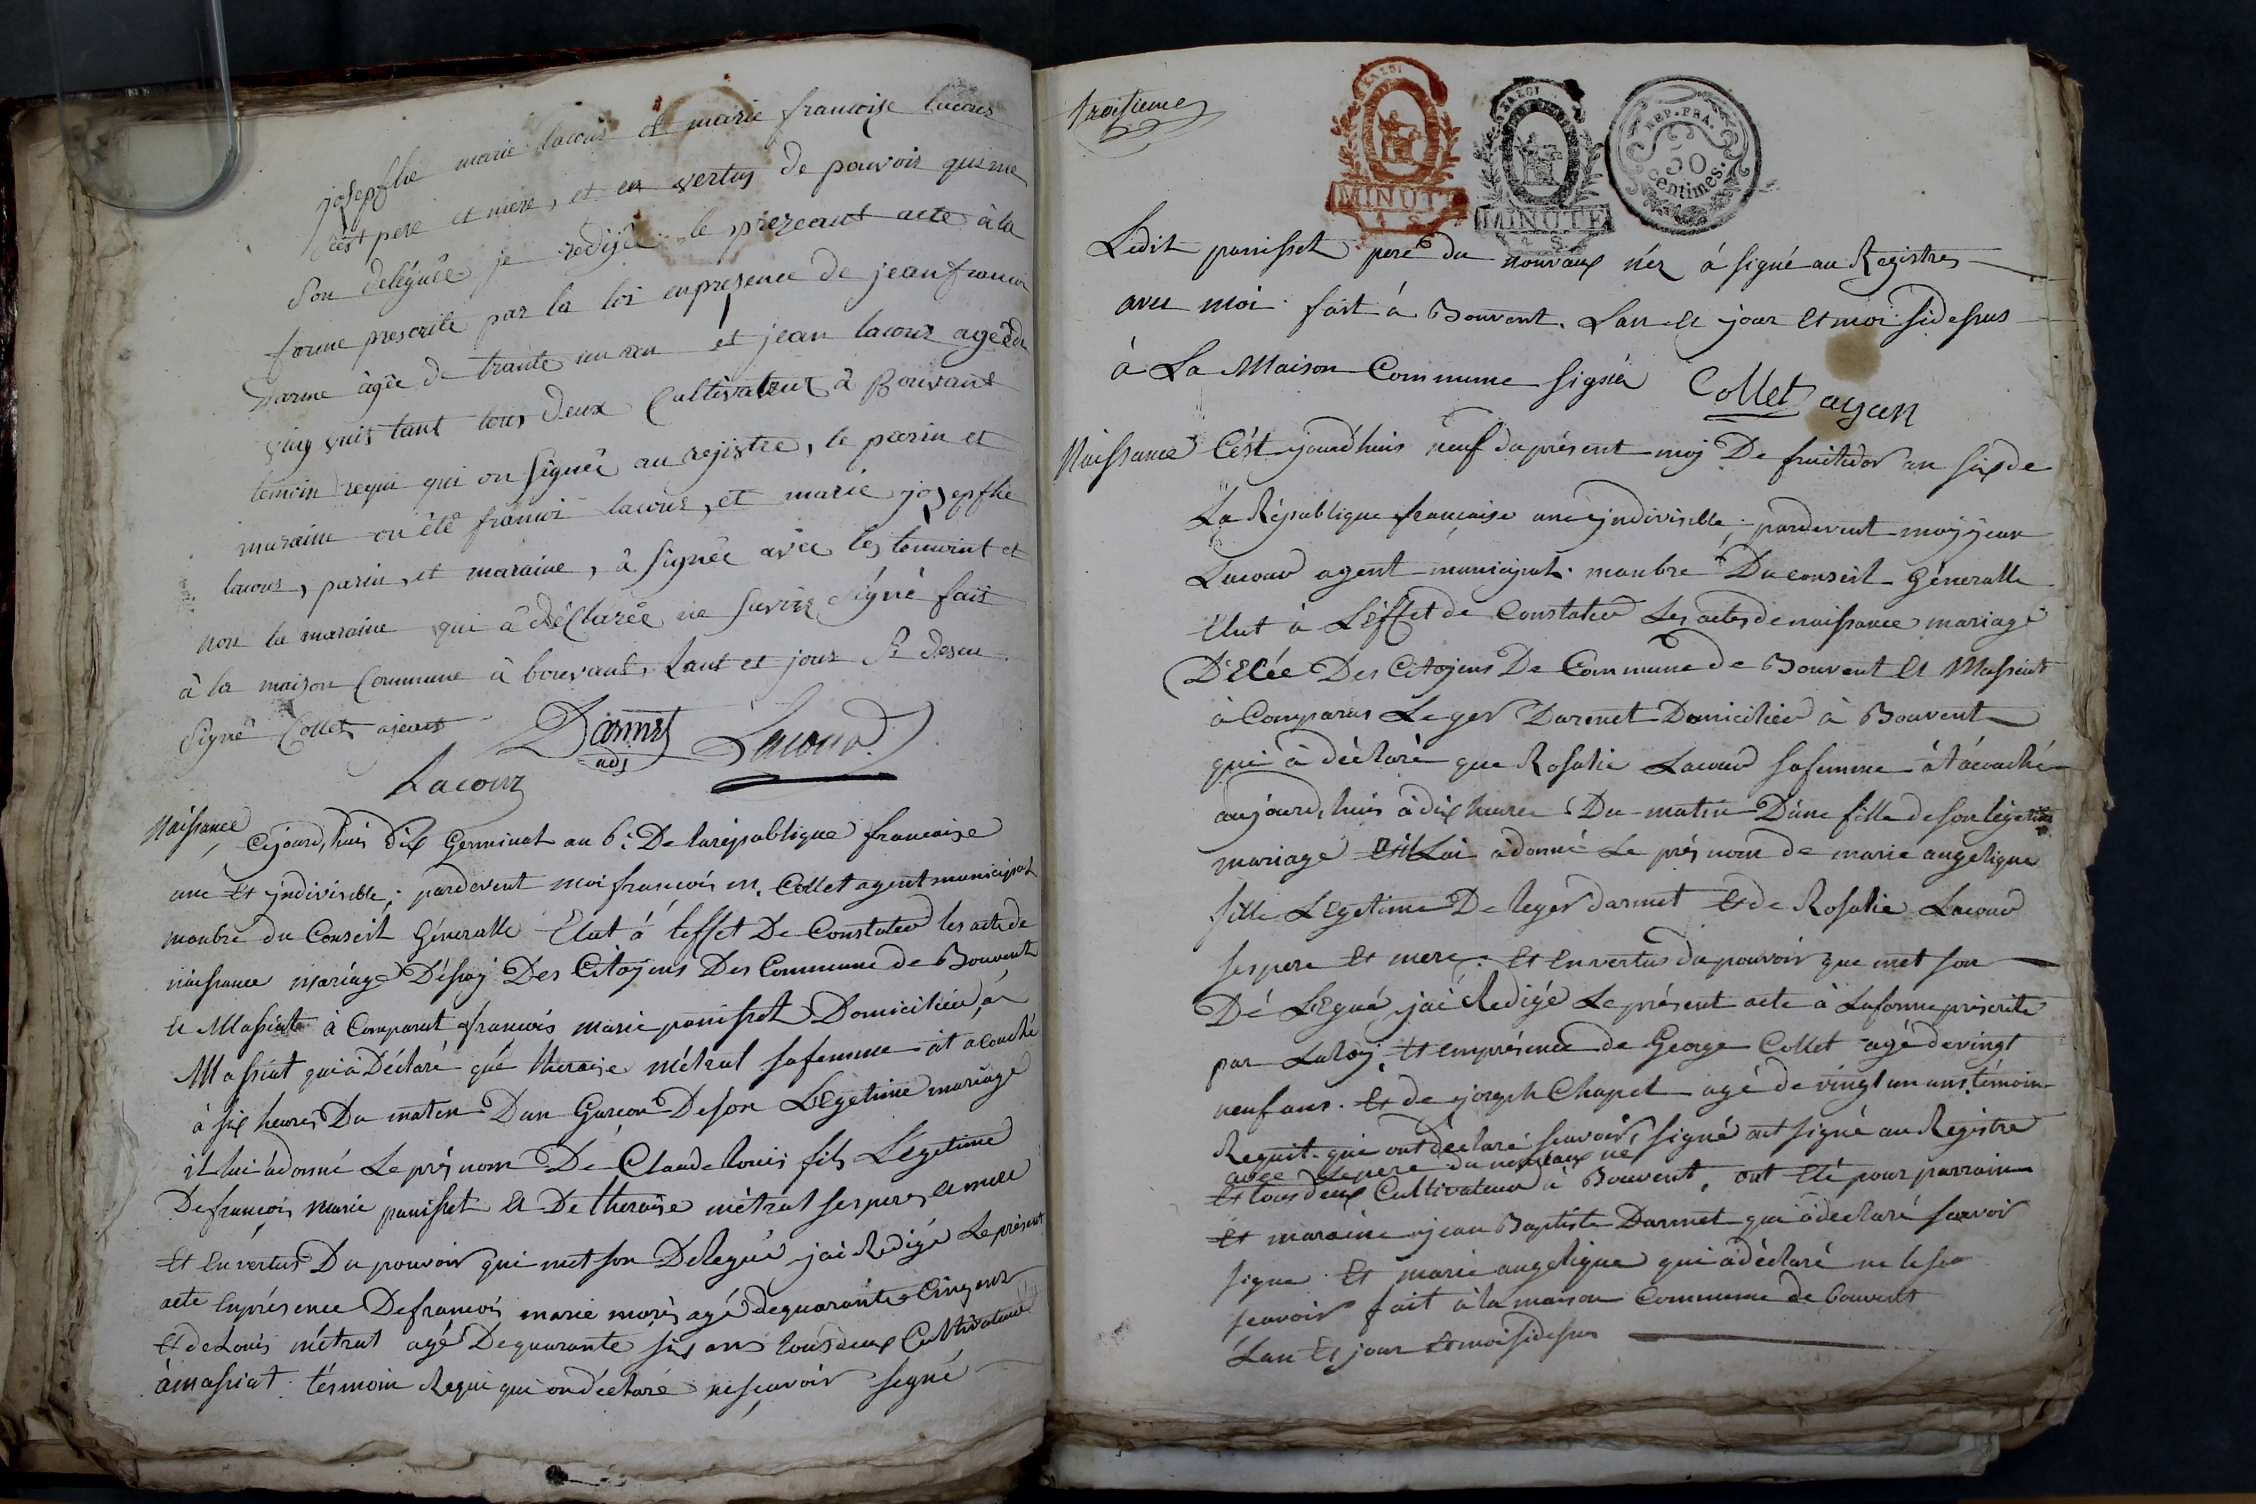 josepfhe marie lacour et marie francoise lacour
cest pere et mere, et en vertus de pouvoir qui me
son deléguée je redijée le prezeant acte à la
forme prescrite par la loi en presence de jean francoi
Darme âgée de trante un an et jean lacour agée de
cinq vuit tant tous deux Cultivateur à Bouvant
temoin requi qui on Signée au rejistre, le parin et
maraine on êtê francoi lacour, et marie josepfhe
lacour, parin, et maraine, à Signée avec les temoint et
non la maraine qui a déclarée ne savoir signé fait
à la maison Commune à bouvant, lant et jour Si desu
Signê Collet ajeant Darmet Lacour
adj
Lacour
Naissance Cejourd,huis dix Germinal an 6e De la république francaise
une Et yndivisible, pardevent moi francois m. Collet agent municipal
manbre du Conseil Géneralle Elut á leffet De Constater les acte de
naissance mariage Désay Des Citoyens Des Commune de Bouvent
Et Massiat à Comparut francois marie panisset Domiciliér á
Massiat qui à Déclaré qué theraise métral safemme at acouché
à six heures Du maten Dun Garcon De son LEgetime mariage
il lui àdonné Le prés nom Dé Claude Louis fils LEgetime
De françois marie panisset Et De theraise métral ses pere, et mere
Et En vertus Du pouvoir qui met son Delegué jai Redigé Le présent
acte En présence De francois marie morés agé dequarante Cinq ens
Et de Louis métral agé De quarante six ans tous deux Cultivateur
à massiat tésmoin Requi qui on déclaré ne scavoir segné
troisieme
REP. FRA.
50
Centimes.
MINUTE
MINUTE
Ledit panisset peré du nouvaux néz á signé au Registres
avec moi fait á Bouvent. Lan Et jour Et moi sidessus
à La Maison Commune signér Collet agan
Naissance Cést jourd'huis neuf du présent moy De fruitidor an six de
La République francaise une yndivisible, pardevent moy jean
Lacour agent municipal manbre Du conseil Géneralle
Elut à LEffet de Constater Les actes de naissance mariage
D'Ecée Des Citoyens De Commune de Bouvent Et Massiat
à Comparus Leger Darmet Domiciliér à Bouvent
qui à déclaré que Rosalie Lacour safemme át ácouché
aujourd,huis à dix heures Du matin Dune fille de son légetime
mariage Etil Lui àdonné Le prés nom de marie angelique
fille LEgetime De leger darmet Et de Rosalie Lacour
ses pere Et mere. Et En vertus du pouvoir que met son
Dé LEgué jai Redigé Le présent acte à La forme préscrite
par La Loy, Et en présence de George Collet agé devingt
neuf ans. Et de joseph Chapel agé de vingt un ans témoin
Requit qui ont déclaré scavoir signé ont signé au Registre
avec le pere du nouvaux né
Et tous deux Cultivateur à Bouvent, ont Eté pour parrain
Et maraine jean Baptiste Darmet qui à déclaré scavoir
signe Et marie angelique qui à déclaré ne le
scavoir fait à la maison Commune de bouvent
Lan Et jour Et moi sidesus